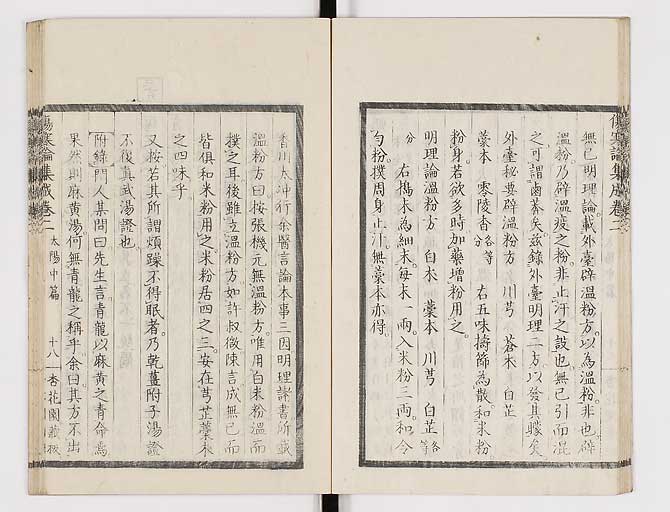 無已明理論載外臺辟溫粉方以為溫粉非也辟
溫粉乃辟溫疫之粉非止汗之設也無已引而混
之可謂鹵莽矣茲錄外臺明理二方以發其矇矣
外臺秘要辟溫粉方 川芎 蒼朮 白芷
藁本 零陵香各等分 右五味擣篩為散和米粉
粉身若欲多時加藥增粉用之
明理論溫粉方 白朮 藁本 川芎 白芷各等
分 右擣末為細末每末一兩入米粉三兩和令
勻粉撲周身止汗無藁本亦得
傷寒論集成卷二
香川太冲行余醫言論本事三因明理諸書所載
溫粉方曰按張機元無溫粉方唯用白米粉溫而
撲之耳後雖立溫粉方如許叔微陳言成無已而
皆俱和米粉用之米粉居四之三安在芎芷藁朮
之四味乎
又按若其所謂煩躁不得眠者乃乾薑附子湯證
不復真武湯證也
附錄門人某問曰先生言青龍以麻黃之青命焉
果然則麻黃湯何無青龍之稱乎余曰其方不出
傷寒論集成卷二 太陽中篇 十八 杏花園藏板